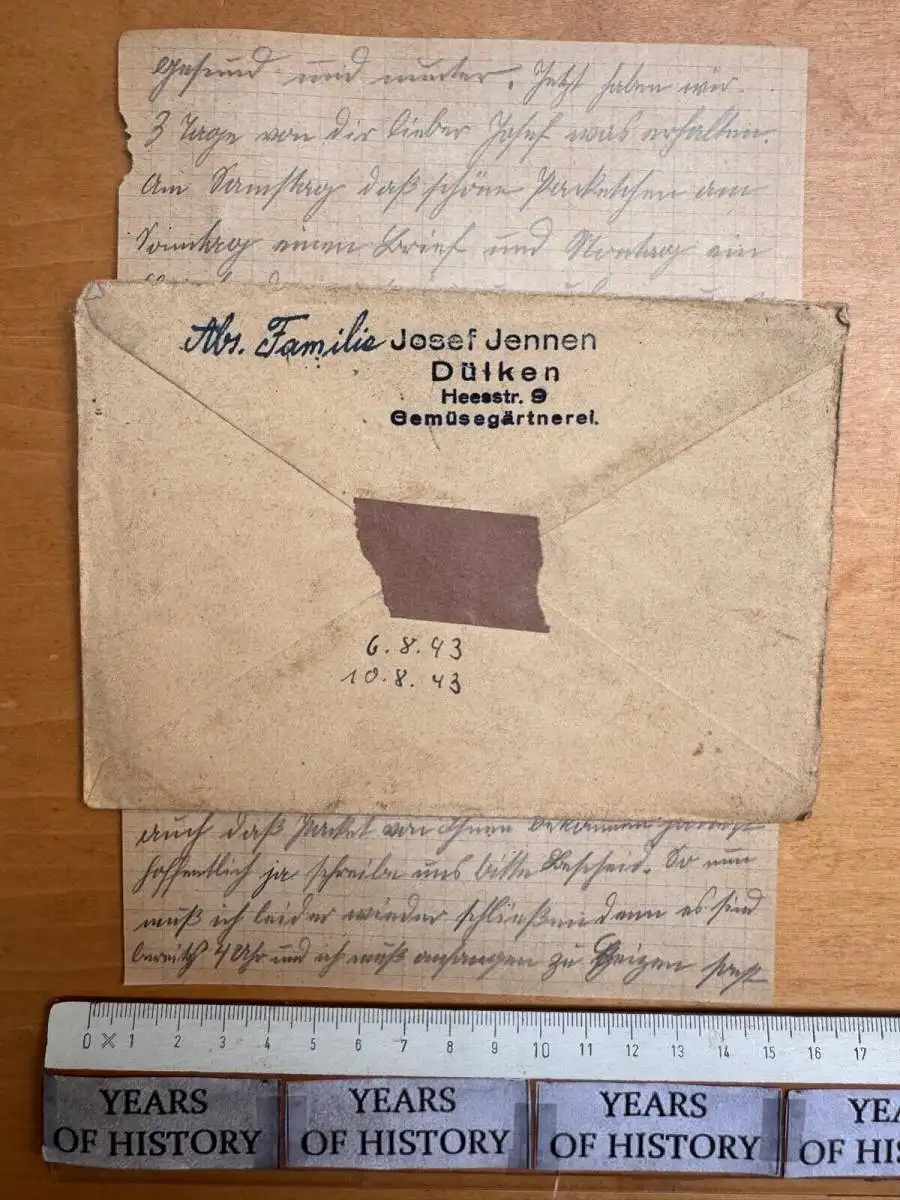 gesund und munter. Jetzt haben wir
3 Tage von dir lieber Josef was erhalten.
Am Samstag daß schöne Packetchen am
Sonntag einen Brief und Montag ein
Abs. Familie Josef Jennen
Dülken
Heesstr. 9
Gemüsegärtnerei.
6.8.43
10.8.43
auch daß Packet von Ihnen bekommen
hoffentlich ja schreibe uns bitte Bescheid. So nun
muß ich leider wieder schließen denn es sind
bereits 4 Uhr und ich muß anfangen zu Heizen sonst
0 1 2 3 4 5 6 7 8 9 10 11 12 13 14 15 16 17
YEARS OF HISTORY YEARS OF HISTORY YEARS OF HISTORY YEA
OF HIS